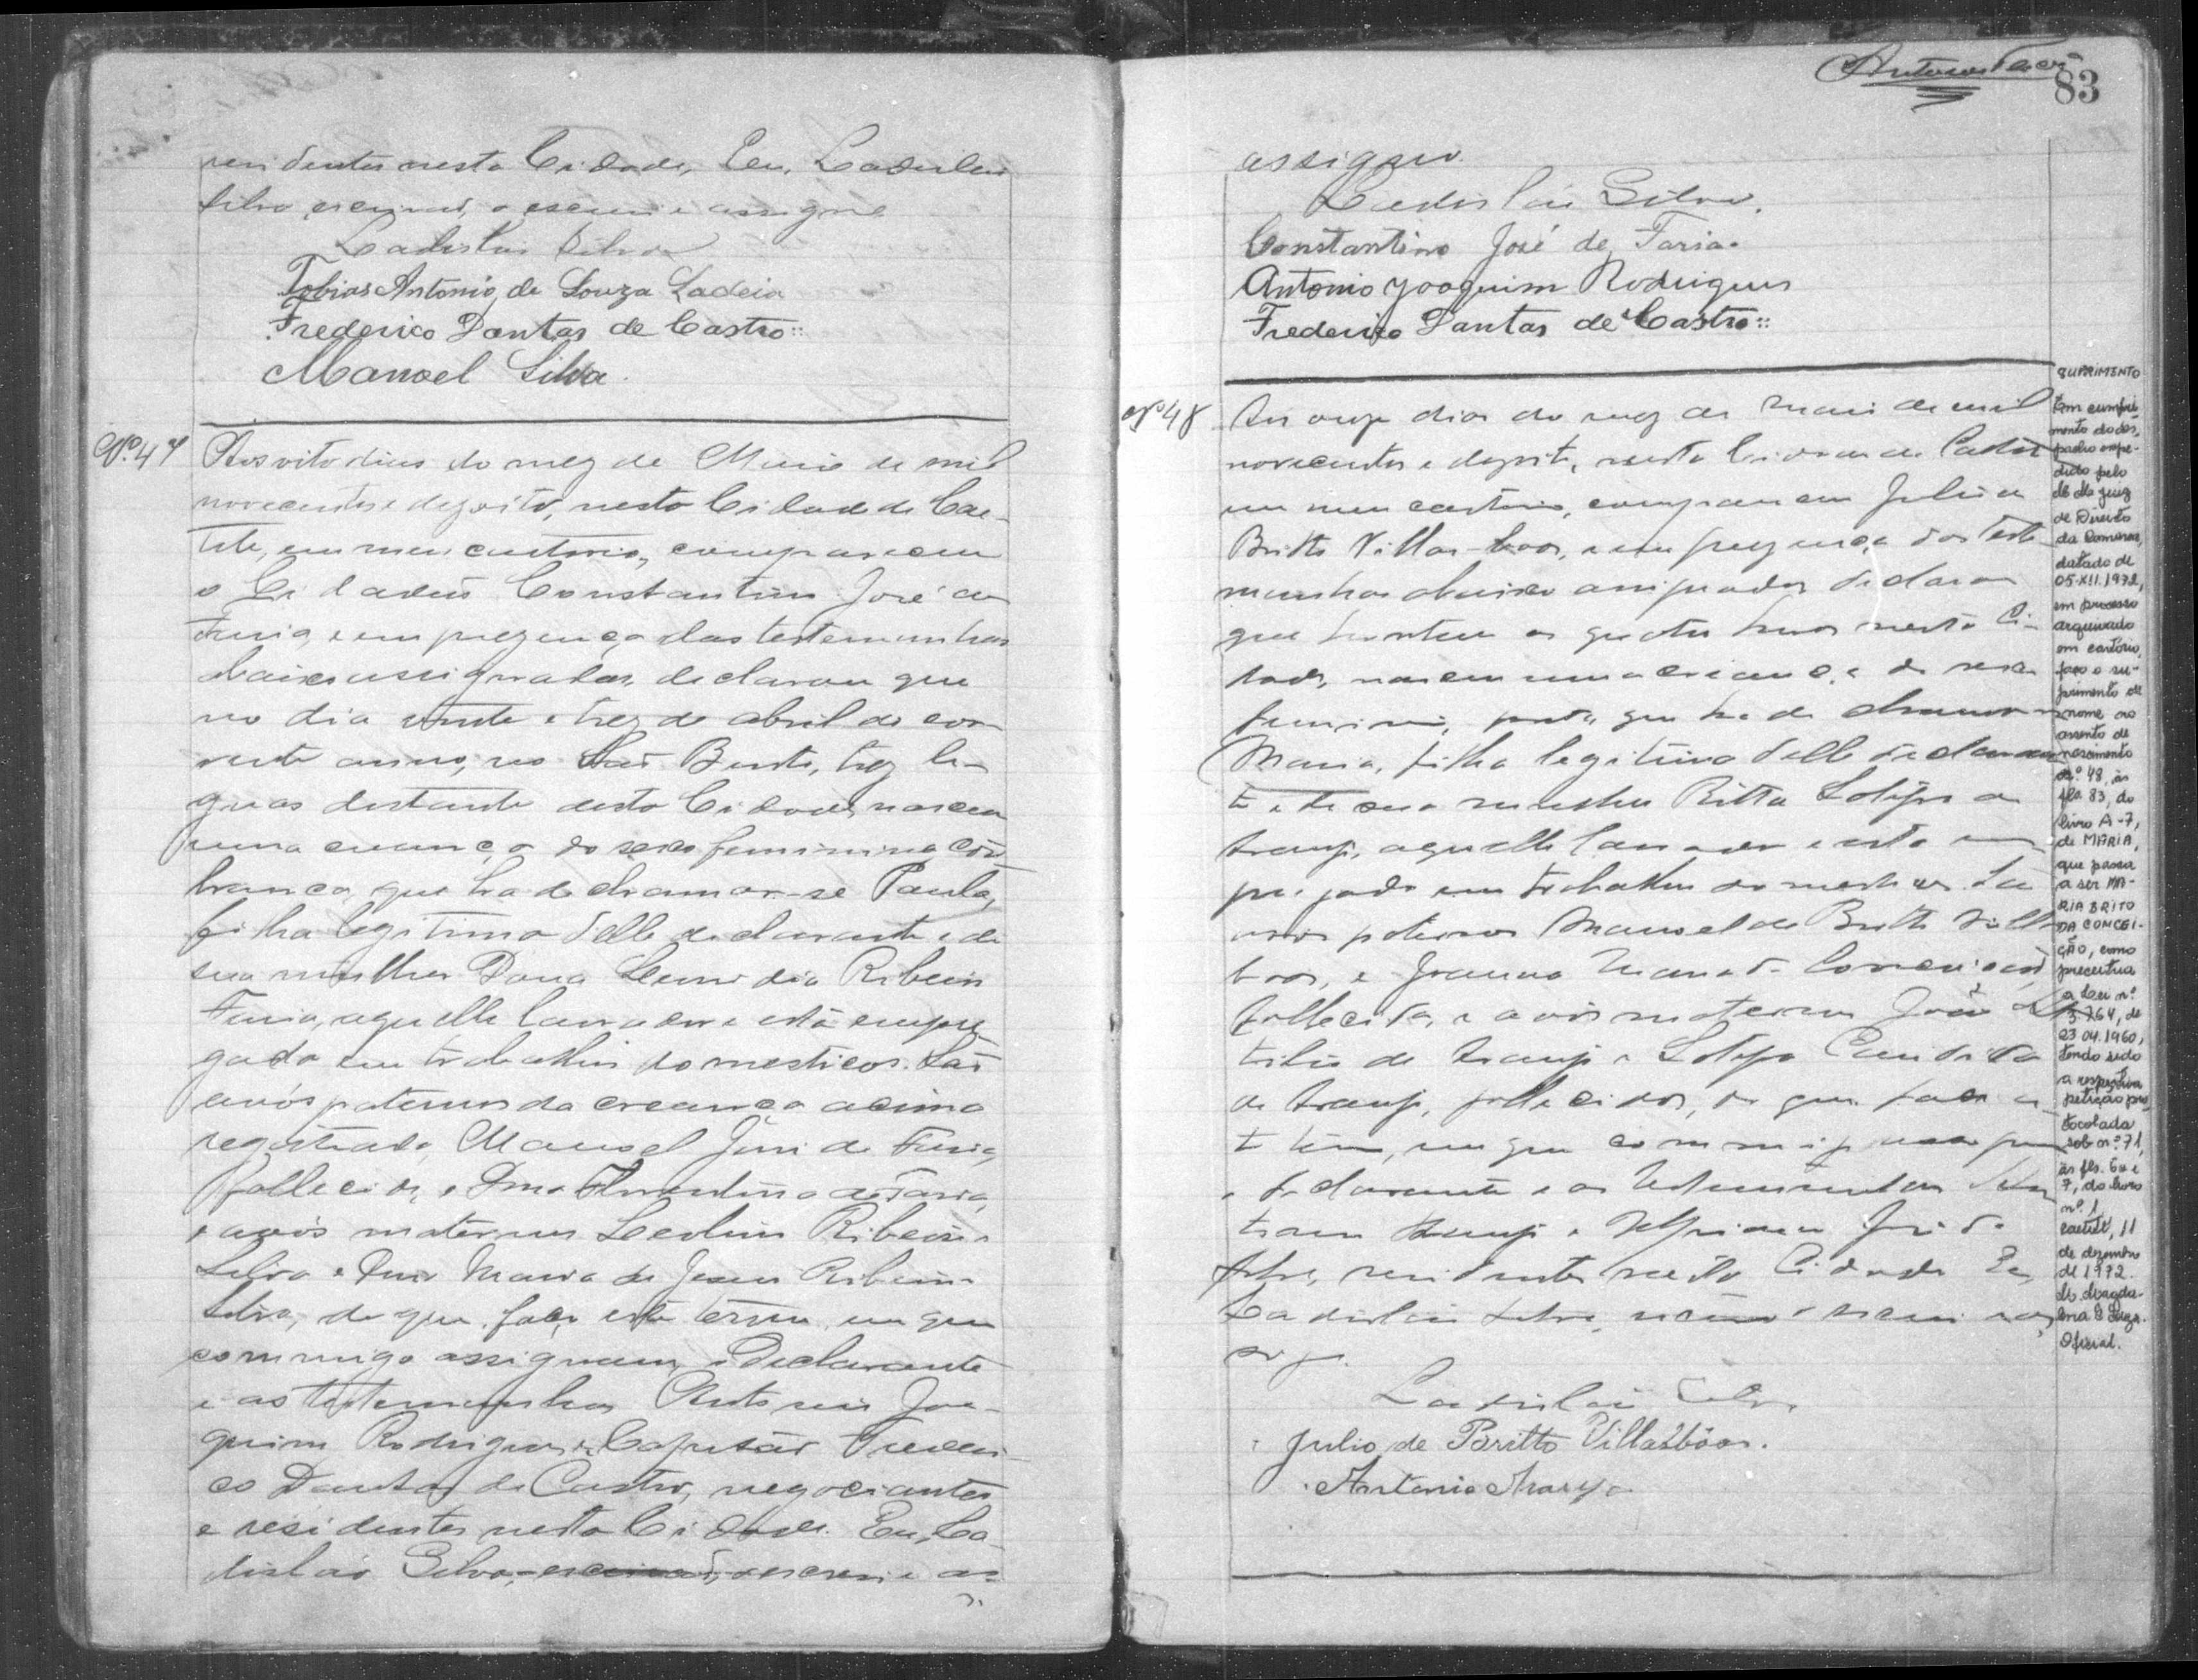 residentes nesta Cidade, Eu, Ladislau
Silva, escrivão, o escrevi e assigno
Ladislau Silva
Tobias Antonio de Souza Ladeia
Frederico Dantas de Castro
Manoel Silva.
Nº 47
Aos oito dias do mez de Maio de mil
novecentos e dezoito, nesta Cidade de Cae-
tité, em meu cartorio, compareceu
o Cidadão Constantino José de
Faria, e em prezença das testemunhas
abaixo assignadas, declarou que
no dia vinte e trez de abril do cor-
rente anno, no São Bento, trez le-
guas distante desta Cidade, nasceu
uma creança do sexo feminino côr
branca, que ha de chamar-se Paula,
filha legitima delle declarante e de
sua mulher Dona Leonidia Ribeiro
Faria, aquelle lavrador e esta empre-
gada em trabalhos domesticos. São
avós paternos da creança acima
registrada, Manoel José de Faria,
fallecido, e Dna Florentina de Faria,
e avós maternos Ribeiro
Silva e Dna Maria de Jesus Ribeiro
Silva, do que faço este termo, em que
commigo assignam, o Declarante
e as testemunhas Antonio Joa-
quim Rodrigues e Capitão Frederi-
co Dantas de Castro, negociantes
e residentes nesta Cidade. Eu, La-
dislao Silva, escrivão, o escrevi e as-
83
assigno.
Ladislau Silva.
Constantino José de Faria.
Antonio Joaquim Rodrigues
Frederico Dantas de Castro
Nº 48
Aos onze dias do mez de Maio de mil
novecentos e dezoito, nesta Cidade de Caetité
em meu cartorio, compareceu Julio de
Britto Villas-boas, e em prezença das teste-
munhas abaixo assignadas declarou
que hontem as quatro horas nesta Ci-
dade, nasceu uma creança do sexo
feminino, que ha de chamar-se
Maria, filha legitima delle declaran-
te e de sua mulher Ritta de
Araujo, aquelle lavrador e esta em-
pregada em trabalhos domesticos. São
avós paternos Manoel de Britto Villas-
boas, e Joanna Maria da Conceição,
fallecida, e avós maternos João
de Araujo e Candida
de Araujo, fallecidos, do que faço es-
te termo, em que commigo assignam
o declarante e as testemunhas
Araujo e José da
Silva, residentes nesta Cidade. Eu,
Ladislau Silva, escrivão o escrevi e as-
signo.
Ladislau Silva.
Julio de Britto Villasbôas.
Antonio Araujo
SUPRIMENTO
Em cumpri-
mento do des-
pacho expe-
dido pelo
Dr. Juiz
de Direito
da Comarca,
datado de
05.XII.1972,
em processo
arquivado
em cartório,
faço o su-
primento de
nome no
assento de
nascimento
nº 48, às
fls. 83, do
livro A-7,
de MARIA,
que passa
a ser MA-
RIA BRITO
DA CONCEI-
ÇÃO, como
preceitua
a Lei nº
3.764, de
23.04.1960,
tendo sido
a respectiva
petição pro-
tocolada
sob nº 71,
às fls. 6v e
7, do livro
nº 1
Caetité, 11
de dezembro
de 1972.
Oficial.